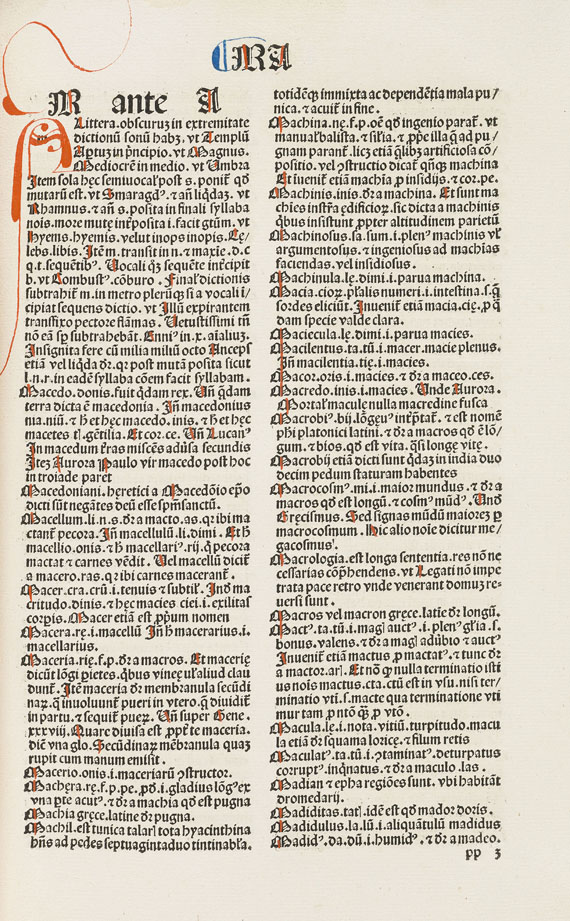 MA
M ante A
Littera. obscuruz in extremitate
dictionū sonū habz. vt Templū
Aptuz in p̄ncipio. vt Magnus.
Mediocrē in medio. vt Umbra
Item sola hęc semiuocalꝰ post s. poniť qđ
mutarū est. vt Smaragdꝰ. ⁊ añ liq̄daz. vt
Rhamnus. ⁊ añ s. posita in finali syllaba
nois. more mutę inťposita i. facit gtūm. vt
hyems. hyemis. velut inops inopis. Cę/
lebs. libis. Itē m. transit in n. ⁊ maxīe. d. c
q. t. sequētibꝰ. Uocali q̄z sequēte inťcipit
h. vt Combustꝰ. cōburo. Final̄ dictionis
subtrahiť m. in metro plerūqz si a vocali i/
cipiat sequens dictio. vt Illū expirantem
transfixo pectore flāmas. Uetustissimi tn̄
nō eā sp̄ subtrahebāt. Enniꝰ in. x. ānaliuz.
Insignita fere cū milia miliū octo Anceps
etiā vel liq̄da dr̄. qꝛ post mutā posita sicut
l. n. r. in eadē syllaba cōem facit syllabam.
Macedo. donis. fuit q̄dam rex. Un̄ q̄dam
terra dicta ē macedonia. Jn̄ macedonius
nia. niū. ⁊ ħ et hęc macedo. inis. ⁊ ħ et hęc
macetes tꝭ. gētilia. Et cor. ce. Un̄ Lucanꝰ
In macedum ťras miscēs aduīsa secundis
Itez Aurora Paulo vir macedo post hoc
in troiade paret
Macedoniani. heretici a Macedōio ep̄o
dicti sūt negātes deū esse sp̄mſanctū.
Macellum. li. n. s. dr̄ a macto. as. qꝛ ibi ma
ctanť pecora. Jn̄ macellulū. li. dimi. Et ħ
macellio. onis. ⁊ ħ macellariꝰ. rij. q̄ pecora
mactat ⁊ carnes vēdit. Uel macellū diciť
a macero. ras. qꝛ ibi carnes maceranť.
Macer. cra. crū. i. tenuis ⁊ subtil'. Jnd ma
critudo. dinis. ⁊ hęc macies ciei. i. exilitas
corpis. Macer etiā est ꝓpum nomen
Macera. rę. i. macellū Jn̄ ħ macerarius. i.
macellarius.
Maceria. rię. f. p. dr̄ a macros. Et macerię
dicūt lōgi pietes. q̄bus vineę ulꝰaliud clau
dunť. Itē maceria dr̄ membranula secūdi
naꝝ. q̄ inuoluunť pueri in vtero. q̄ diuidiť
in partu. ⁊ sequiť pueꝝ. Un̄ super Gene.
xxxviij. Quare diuisa est ꝓpť te maceria.
dic̄ vna glo. Secūdinaꝝ mēbranula quaz
rupit cum manum emisit.
Macerio. onis. i. maceriarū ꝯstructor.
Machęra. rę. f. p. pe. ꝓd. i. gladius lōgꝰ ex
vna pte acutꝰ. ⁊ dr̄ a machia qđ est pugna
Machia gręce. latine dr̄ pugna.
Machil. est tunica talarꝭ tota hyacinthina
hn̄s ad pedes septuagintaduo tintinabl̄a.
totidēqz immixta ac dependētia mala pu/
nica. ⁊ acuiť in fine.
Machina. nę. f. p. oē qđ ingenio parať. vt
manual̄ balista. ⁊ sil̄ia. ⁊ ꝓp̄e illa q̄ ad pu/
gnam paranť. licz etiā q̄libz artificiosa cō/
positio. vel ꝯstructio dicať q̄nqz machina
Et īuenīť etiā machīa ꝓ insidijs. ⁊ cor. pe.
Machinis. inis. dr̄ a machina. Et sunt ma
chies instr̄a ędificioꝝ. sic dicta a machinis
q̄bus insistunt ꝓpter altitudinem parietū
Machinosus. sa. sum. i. plenꝰ machinis vl'
argumentosus. ⁊ ingeniosus ad machias
faciendas. vel insidiosus.
Machinula. lę. dimi. i. parua machina.
Macia. cioꝝ. pl̄alis numeri. i. intestina. s. q̄
sordes eliciūt. Jnueniť etiā macia. cię. ꝓ q̄
dam specie valde clara.
Maciecula. lę. dimi. i. parua macies.
Macilentus. ta. tū. i. macer. macie plenus.
Jn̄ macilentia. tię. i. macies.
Macor. oris. i. macies. ⁊ dr̄ a maceo. ces.
Macredo. inis. i. macies. Unde Aurora.
Mortal' maculę nulla macredine fusca
Macrobiꝰ. bij. lōgęuꝰ intp̄tať. ⁊ est nomē
phī platonici latini. ⁊ dr̄ a macros qđ ē lō/
gum. ⁊ bios. qđ est vita. q̄si longę vitę.
Macrobij etiā dicti sunt q̄daz in india duo
decim pedum staturam habentes
Macrocosmꝰ. mi. i. maior mundus. ⁊ dr̄ a
macros qđ est longū. ⁊ cosmꝰ mūdꝰ. Und
Gręcismus. Sed signas mūdū maiorez ꝑ
macrocosmum. Hic alio noīe diciťur me/
gacosmus'.
Macrologia. est longa sententia. res nō ne
cessarias cōp̄hendens. vt Legati nō impe
trata pace retro vnde venerant domuz re-
uersi sunt.
Macros vel macron gręce. latīe dr̄ longū.
Mactꝰ. ta. tū. i. magꝭ auctꝰ. i. plenꝰ gl̄ia. s.
bonus. valens. ⁊ dr̄ a magꝭ adūbio ⁊ auctꝰ
Jnueniť etiā mactus ꝓ mactatꝰ. ⁊ tunc dr̄
a mactor. arꝭ. Et nō q̄ nulla terminatio isti
us nois mactus. cta. ctū est in vsu. nisi ter/
minatio vti. s. macte qua terminatione vti
mur tam ꝓ ntō q̄z ꝓ vtō.
Macula. lę. i. nota. vitiū. turpitudo. macu
la etiā dr̄ squama loricę. ⁊ filum retis
Maculatꝰ. ta. tū. i. ꝯtaminatꝰ. deturpatus
corruptꝰ. inq̄natus. ⁊ dr̄ a maculo. las.
Madian ⁊ epha regiōes sunt. vbi habitāt
dromedarij.
Madiditas. tatꝭ. idē est qđ mador doris.
Madidulus. la. lū. i. aliquātulū madidus
Madidꝰ. da. dū. i. humidꝰ. ⁊ dr̄ a madeo.
pp 3